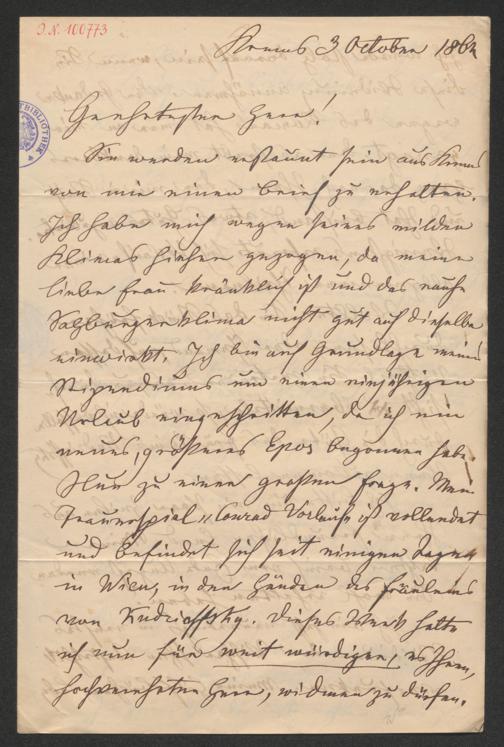 J.N. 100773
Krems 3 October 186
BIBLIOTHEK
Geehrtester Herr!
Sie werden erstaunt sein aus Krems
von mir einen Brief zu erhalten.
Ich habe mich wegen seines milden
Klimas hieher gezogen, da meine
liebe Frau kränklich ist und das rauhe
Salzburgerklima nicht gut auf dieselbe
einwirkt. Ich bin auf Grundlage meines
Stipendiums um einen einjährigen
Urlaub eingeschritten, da ich ein
neues, größeres Epos begonnen habe.
Nun zu einer großen Frage. Mein
Trauerspiel „Conrad Vorlauf“ ist vollendet
und befindet sich seit einigen Tagen
in Wien, in den Händen des Fräuleins
von Kudriaffsky. Dieses Werk halte
ich nun für weit würdiger, es Ihnen,
hochverehrter Herr, widmen zu dürfen.